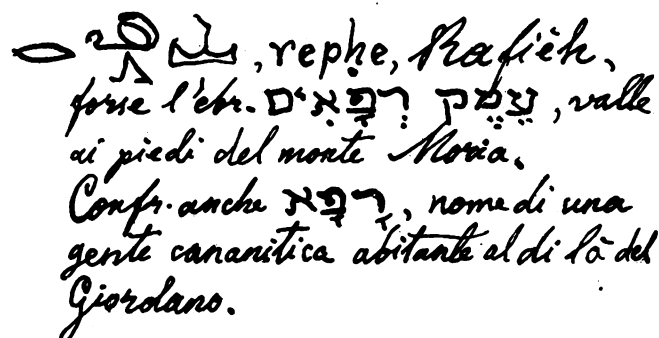 , rephe, Rafièh,
forse l'ebr. עֵמֶק רְפָאִים, valle
ai piedi del monte Moria.
Confr. anche רָפָא, nome di una
gente cananitica abitante al di là del
Giordano.